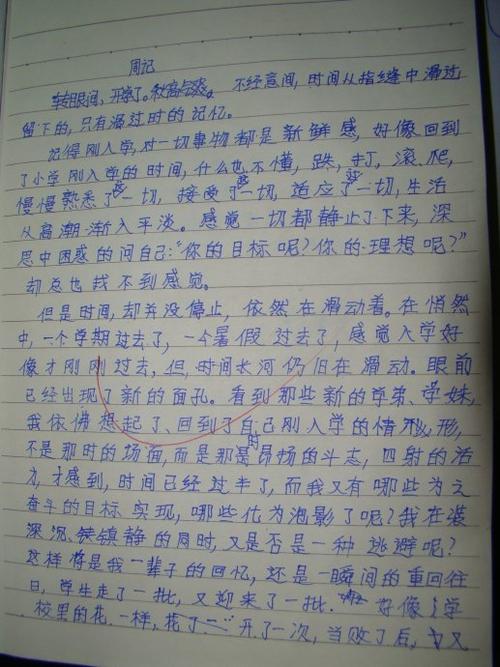 周记
转眼间、开学了。秋高气爽。 不经意间，时间从指缝中滑过
留下的，只有滑过时的记忆。
记得刚入学，对一切事物都是新鲜感，好像回到
了小学刚入学的时间，什么也不懂，跌，打，滚，爬，
慢慢熟悉了这一切，接受了这一切，适应了这一切，生活
从高潮渐入平淡。感觉一切都静止了下来，深
思中困惑的问自己："你的目标呢？你的理想呢？"
却总也找不到感觉。
但是时间，却并没停止，依然在滑动着。在悄然
中，一个学期过去了，一个暑假过去了，感觉入学好
像才刚刚过去，但，时间长河仍旧在滑动。眼前
已经出现了新的面孔。看到那些新的学弟、学妹，
我依佛想起了、回到了自己刚入学的情形，
不是那时的场面，而是那时昂扬的斗志，四射的活
力，才感到，时间已经过半了，而我又有哪些为之
奋斗的目标实现，哪些化为泡影了呢？我在装
深沉、装镇静的同时，又是否是一种逃避呢？
这样将是我一辈子的回忆，还是一瞬间的重回往
日，学生走了一批，又迎来了一批. 好像学
校里的花.一样，花了一 开了一次，当败了后，又